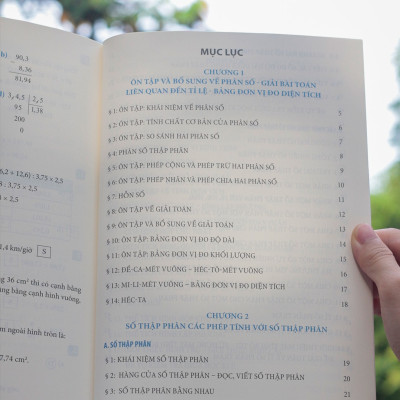 b) 99,3
8,36
81,94
3,4,5 | 2,5
95 | 1,38
200
0
6,2 × 12,6) : 3,75 × 2,5
: 3,75 × 2,5
× 2,5
1,4 km/giờ S
g 36 cm² thì có cạnh bằng
ng bằng cạnh hình vuông.
m ngoài hình tròn là:
7,74 cm².
MỤC LỤC
CHƯƠNG 1
ÔN TẬP VÀ BỔ SUNG VỀ PHÂN SỐ - GIẢI BÀI TOÁN
LIÊN QUAN ĐẾN TỈ LỆ - BẢNG ĐƠN VỊ ĐO DIỆN TÍCH
§ 1: ÔN TẬP: KHÁI NIỆM VỀ PHÂN SỐ 5
§ 2: ÔN TẬP: TÍNH CHẤT CƠ BẢN CỦA PHÂN SỐ 5
§ 3: ÔN TẬP: SO SÁNH HAI PHÂN SỐ
§ 4: PHÂN SỐ THẬP PHÂN
§ 5: ÔN TẬP: PHÉP CỘNG VÀ PHÉP TRỪ HAI PHÂN SỐ
§ 6: ÔN TẬP: PHÉP NHÂN VÀ PHÉP CHIA HAI PHÂN SỐ 10
§ 7: HỖN SỐ
§ 8: ÔN TẬP VỀ GIẢI TOÁN
§ 9: ÔN TẬP VÀ BỔ SUNG VỀ GIẢI TOÁN
§ 10: ÔN TẬP: BẢNG ĐƠN VỊ ĐO ĐỘ DÀI 14
§ 11: ÔN TẬP: BẢNG ĐƠN VỊ ĐO KHỐI LƯỢNG
§ 12: ĐỀ-CA-MÉT VUÔNG – HÉC-TÔ-MÉT VUÔNG 16
§ 13: MI-LI-MÉT VUÔNG – BẢNG ĐƠN VỊ ĐO DIỆN TÍCH 17
§ 14: HÉC-TA 18
CHƯƠNG 2
SỐ THẬP PHÂN CÁC PHÉP TÍNH VỚI SỐ THẬP PHÂN
A. SỐ THẬP PHÂN
§ 1: KHÁI NIỆM SỐ THẬP PHÂN 19
§ 2: HÀNG CỦA SỐ THẬP PHÂN – ĐỌC, VIẾT SỐ THẬP PHÂN 20
§ 3: SỐ THẬP PHÂN BẰNG NHAU 21